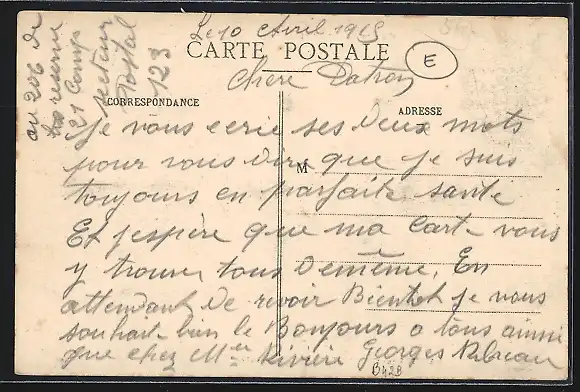 Le 10 Avril 1915
CARTE POSTALE
E
Chere Patron
CORRESPONDANCE
ADRESSE
M
Je vous ecrie ses deux mots
pour vous dire que je suis
toujours en parfaite sante
Et j'espère que ma carte vous
y trouve tous de même. En
attendant de revoir Bientot je vous
souhait bien le Bonjours a tous ainsi
que chez Mme Rivière Georges
au 206 de
reserve
21 Comp
secteur
Postal
123
B428